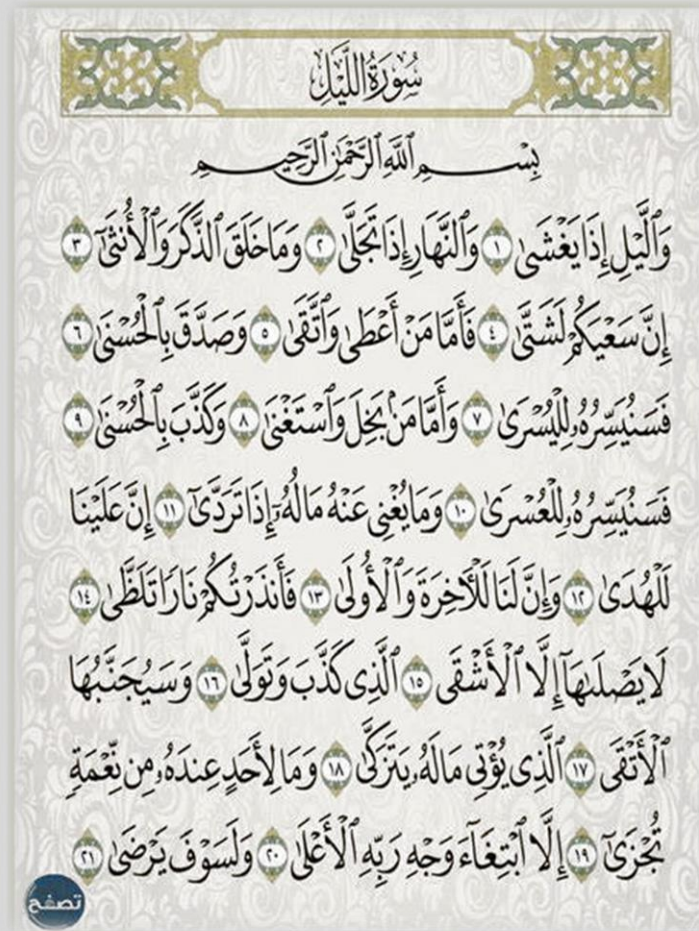 سُورَةُ اللَّيْلِ
بِسْمِ ٱللَّهِ ٱلرَّحْمَٰنِ ٱلرَّحِيمِ
وَٱلَّيْلِ إِذَا يَغْشَىٰ ١ وَٱلنَّهَارِ إِذَا تَجَلَّىٰ ٢ وَمَا خَلَقَ ٱلذَّكَرَ وَٱلْأُنثَىٰٓ ٣
إِنَّ سَعْيَكُمْ لَشَتَّىٰ ٤ فَأَمَّا مَنْ أَعْطَىٰ وَٱتَّقَىٰ ٥ وَصَدَّقَ بِٱلْحُسْنَىٰ ٦
فَسَنُيَسِّرُهُۥ لِلْيُسْرَىٰ ٧ وَأَمَّا مَنۢ بَخِلَ وَٱسْتَغْنَىٰ ٨ وَكَذَّبَ بِٱلْحُسْنَىٰ ٩
فَسَنُيَسِّرُهُۥ لِلْعُسْرَىٰ ١٠ وَمَا يُغْنِى عَنْهُ مَالُهُۥٓ إِذَا تَرَدَّىٰٓ ١١ إِنَّ عَلَيْنَا
لَلْهُدَىٰ ١٢ وَإِنَّ لَنَا لَلْـَٔاخِرَةَ وَٱلْأُولَىٰ ١٣ فَأَنذَرْتُكُمْ نَارًا تَلَظَّىٰ ١٤
لَا يَصْلَىٰهَآ إِلَّا ٱلْأَشْقَى ١٥ ٱلَّذِى كَذَّبَ وَتَوَلَّىٰ ١٦ وَسَيُجَنَّبُهَا
ٱلْأَتْقَى ١٧ ٱلَّذِى يُؤْتِى مَالَهُۥ يَتَزَكَّىٰ ١٨ وَمَا لِأَحَدٍ عِندَهُۥ مِن نِّعْمَةٍ
تُجْزَىٰٓ ١٩ إِلَّا ٱبْتِغَآءَ وَجْهِ رَبِّهِ ٱلْأَعْلَىٰ ٢٠ وَلَسَوْفَ يَرْضَىٰ ٢١
تصفح